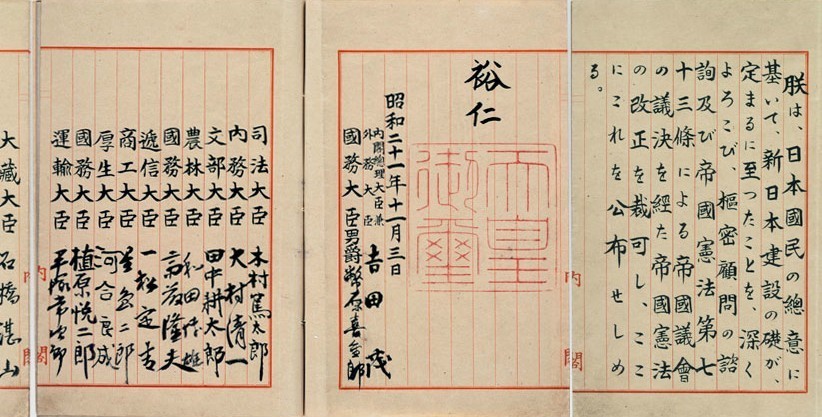 朕は、日本國民の總意に
基いて、新日本建設の礎が、
定まるに至つたことを、深く
よろこび、樞密顧問の諮
詢及び帝國憲法第七
十三條による帝國議會
の議決を經た帝國憲法
の改正を裁可し、ここ
にこれを公布せしめ
る。
内閣
裕仁
天皇御璽
昭和二十一年十一月三日
内閣總理大臣兼
外務大臣 吉田茂
國務大臣男爵幣原喜重郎
司法大臣 木村篤太郎
内務大臣 大村清一
文部大臣 田中耕太郎
農林大臣 和田博雄
國務大臣 斎藤隆夫
逓信大臣 一松定吉
商工大臣 星島二郎
厚生大臣 河合良成
國務大臣 植原悦二郎
運輸大臣 平塚常次郎
内閣
大藏大臣 石橋湛山